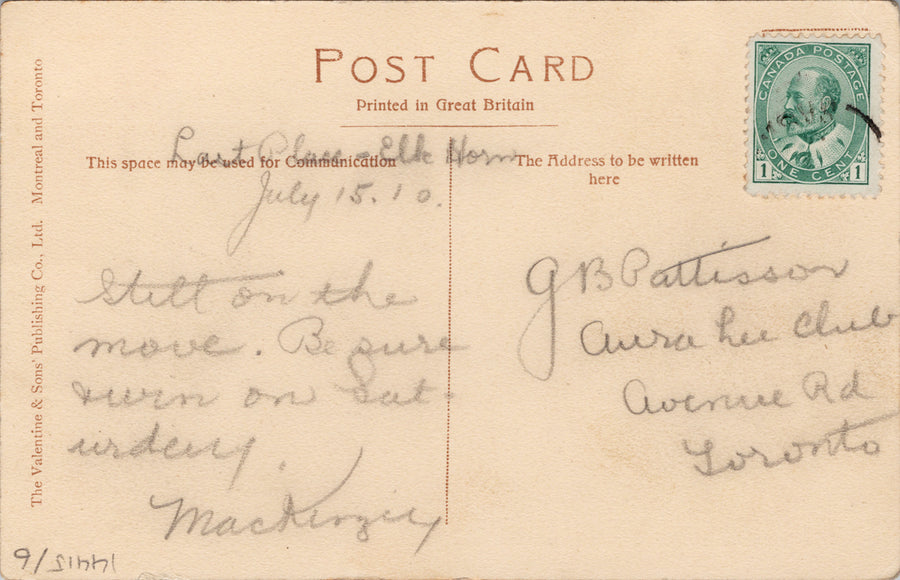 POST CARD
Printed in Great Britain
CANADA POSTAGE
ONE CENT
1 1
This space may be used for Communication
The Address to be written
here
Last Place - Elk Horn
July 15. 10.
Still on the
move. Be sure
& win on Sat-
urday.
MacKenzie
G B Pattisson
Aura Lee Club
Avenue Rd
Toronto
The Valentine & Sons' Publishing Co., Ltd. Montreal and Toronto
14415/6